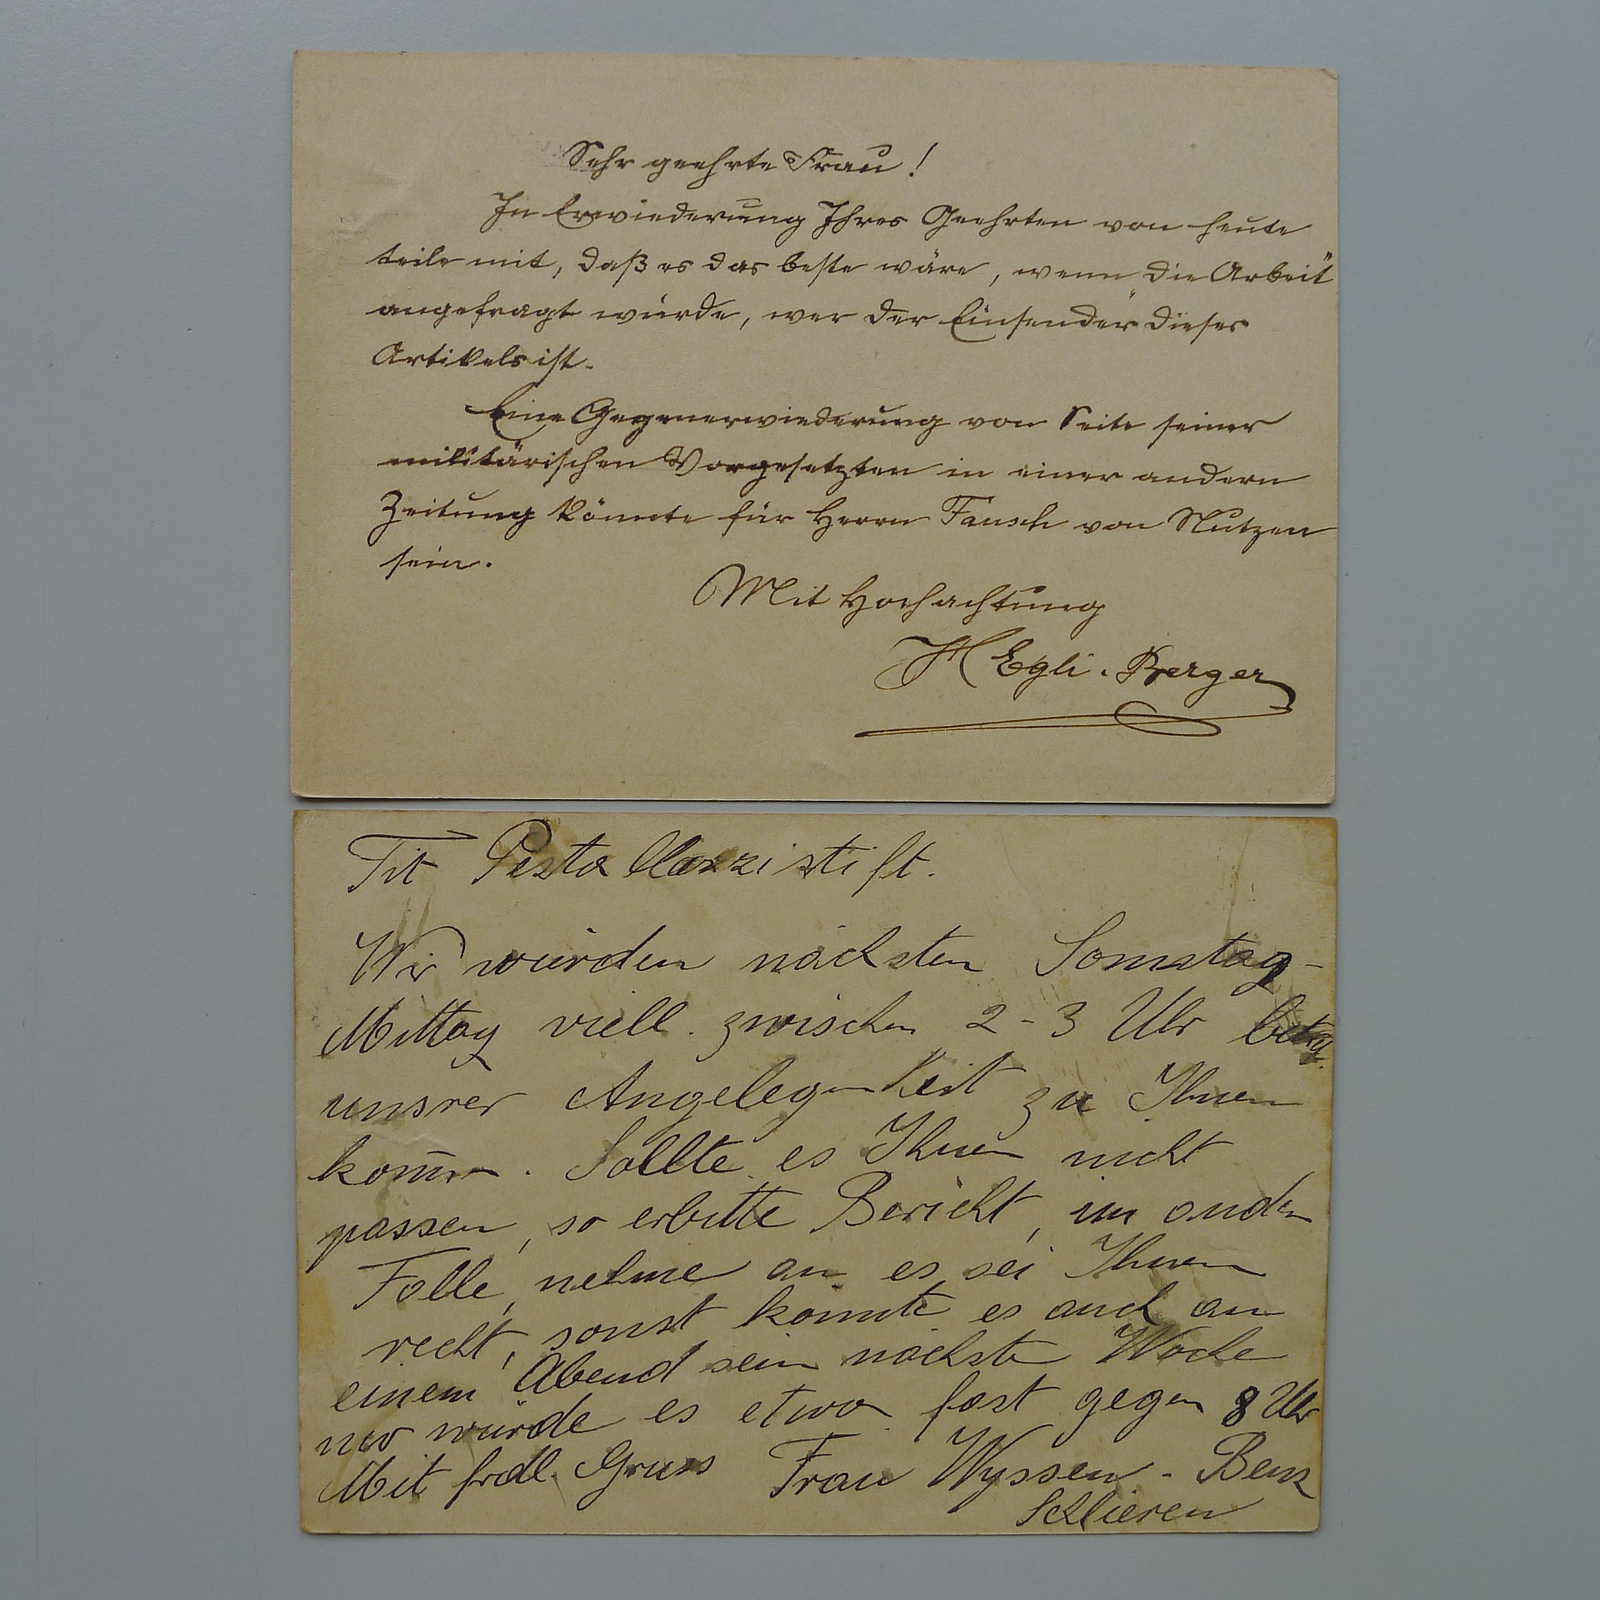 Sehr geehrte Frau!
In Erwiederung Ihres Geehrten von heute
teile mit, daß es das beste wäre, wenn „die Arbeit"
angefragt würde, wer der Einsender dieses
Artikels ist.
Eine Gegenerwiederung von Seite seiner
militärischen Vorgesetzten in einer andern
Zeitung könnte für Herrn Fausch von Nutzen
sein.
Mit Hochachtung
H Egli-Berger
Tit Pestallozzistift.
Wir würden nächsten Somstag-
Mittag viell. zwischen 2-3 Uhr betrg.
unsrer Angelegenheit zu Ihnen
kom̅en. Sollte es Ihnen nicht
passen, so erbitte Bericht, im andern
Falle, nehme an es sei Ihnen
recht, sonst könnte es auch an
einem Abend sein nächste Woche
nur würde es etwa fast gegen 8 Uhr
Mit frdl. Gruss Frau Wyssen-Benz
Schlieren